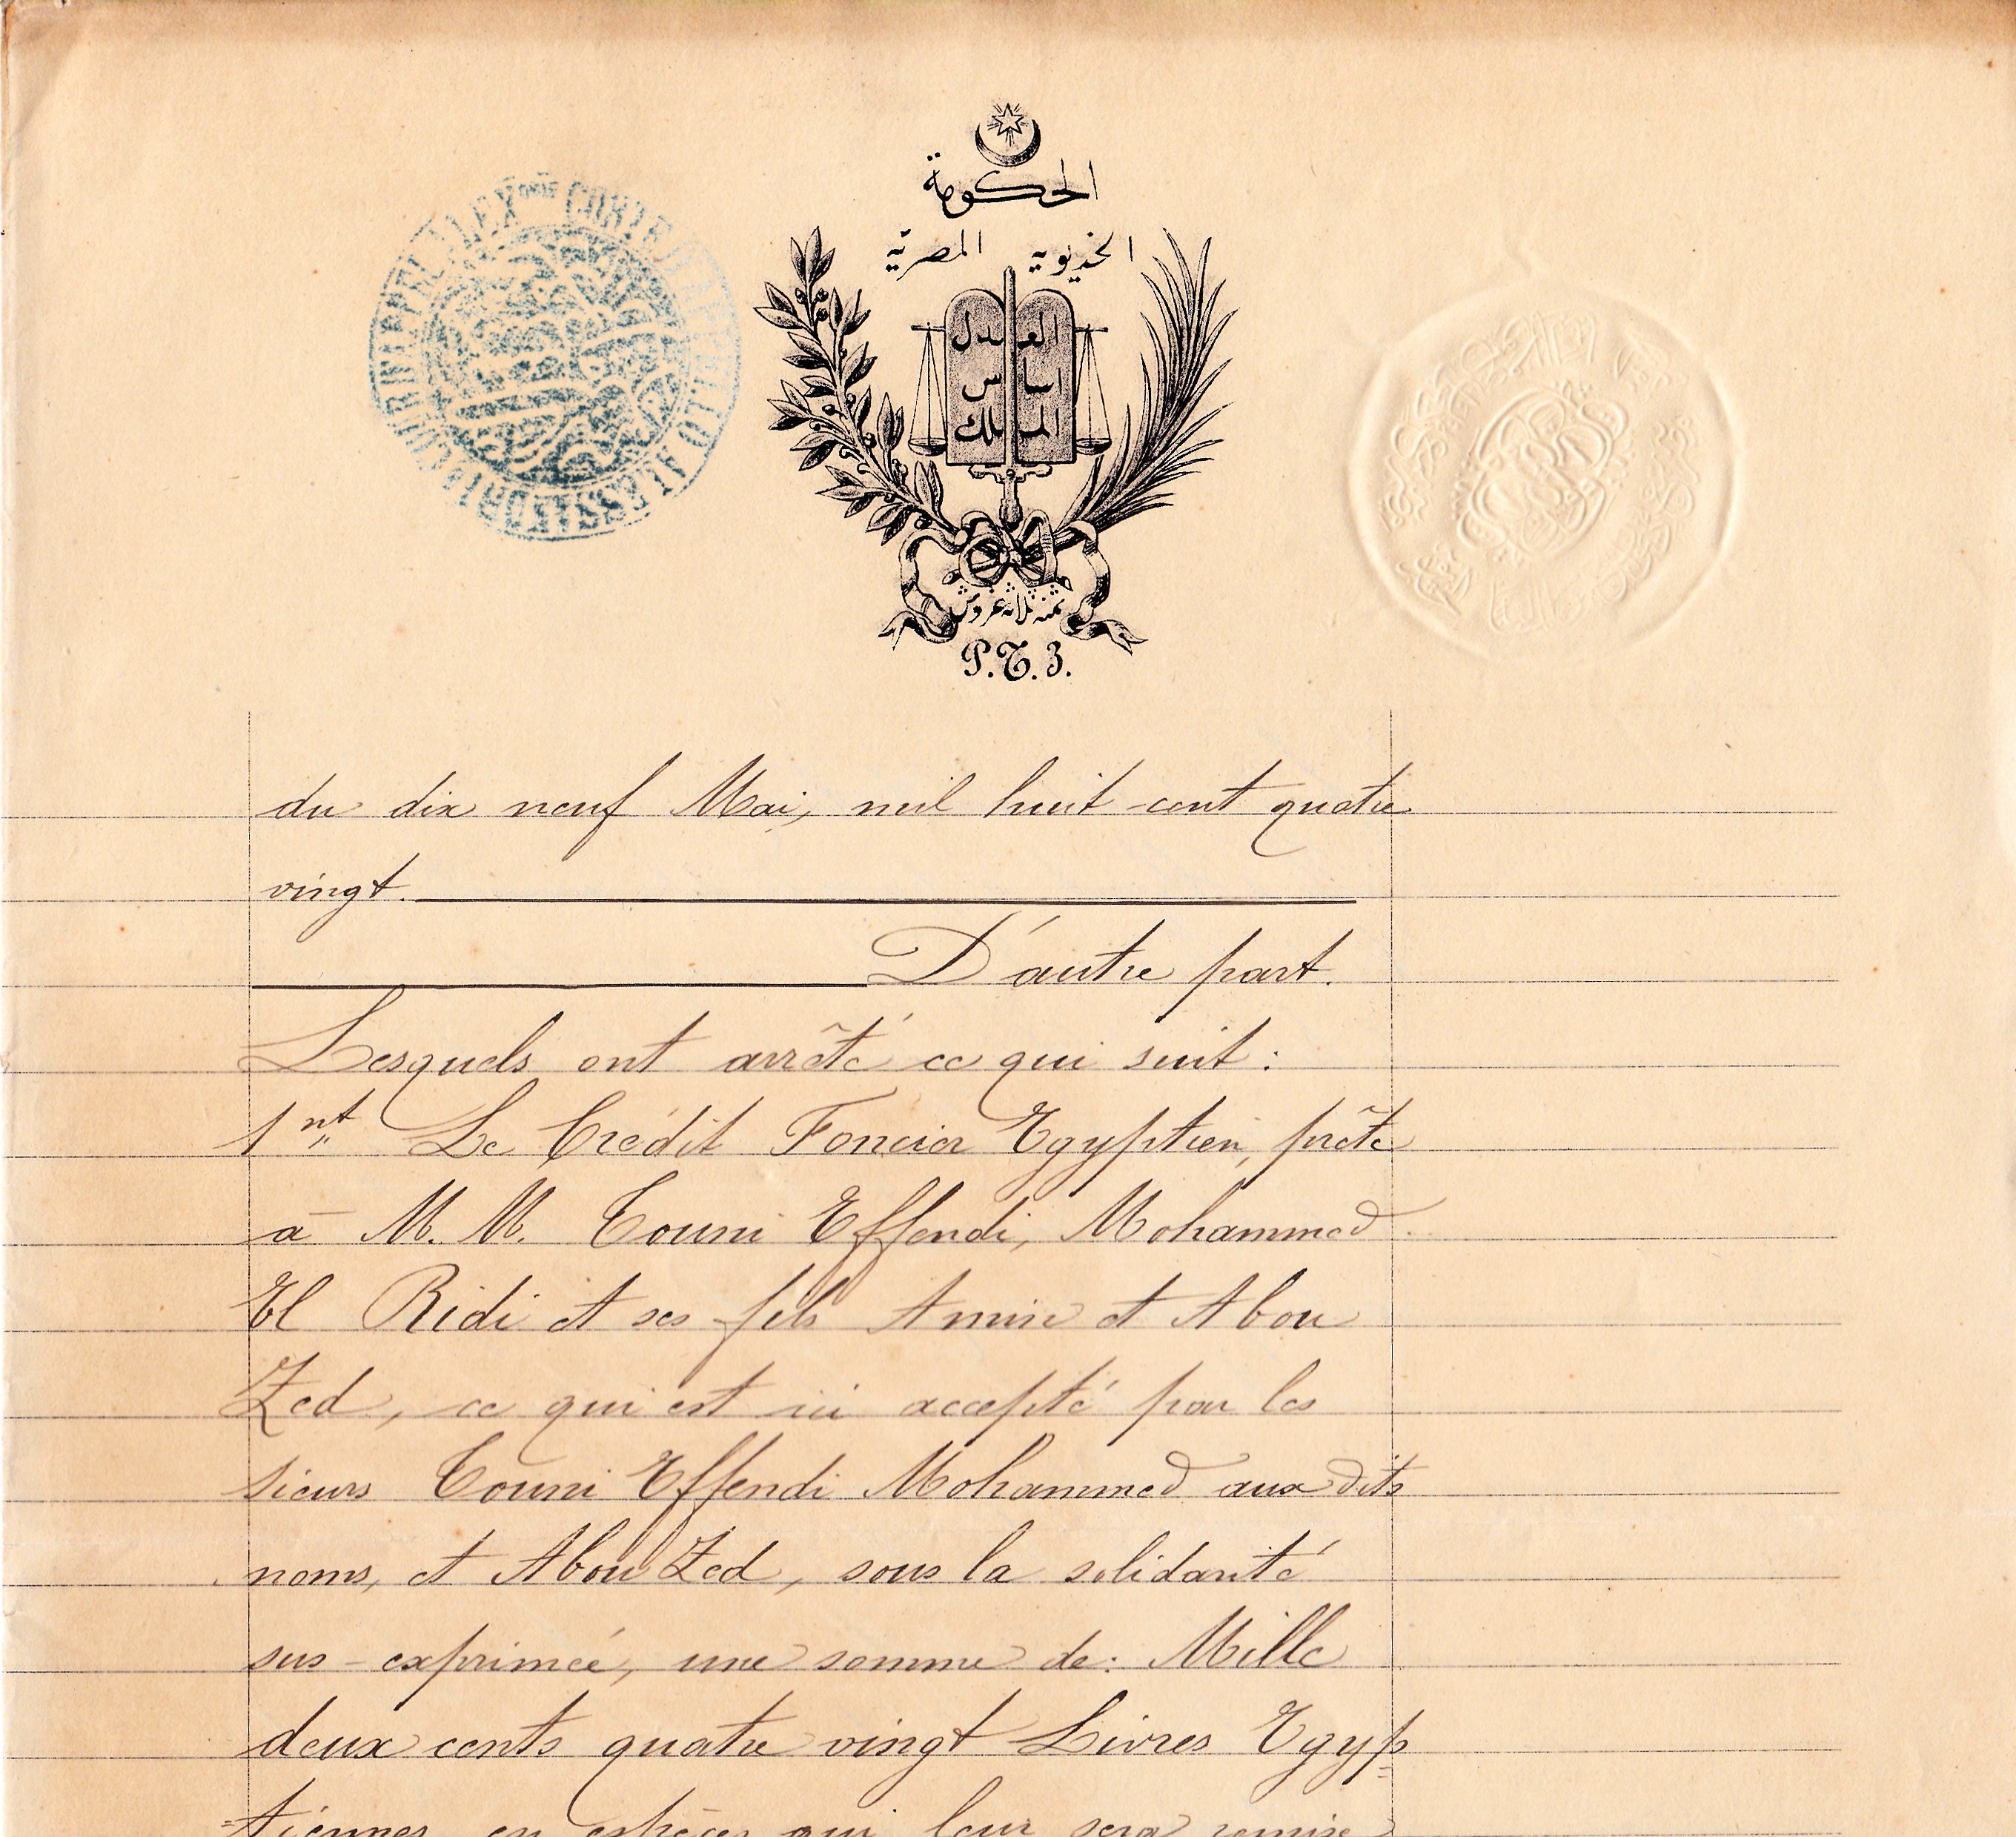 الحكومة
الخديوية المصرية
العدل
اساس
الملك
بثمنه ثلاثة غروش
P.T. 3.
du dix neuf Mai, mil huit cent quatre
vingt.
D'autre part.
Lesquels ont arrêté ce qui suit :
1nt Le Crédit Foncier Egyptien, prête
à M. M. Touni Effendi, Mohammed
El Ridi et ses fils Amin et Abou
Zed, ce qui est ici accepté par les
sieurs Touni Effendi Mohammed aux dits
noms, et Abou Zed, sous la solidarité
sus-exprimée, une somme de: Mille
deux cents quatre vingt Livres Egyp=
=tiennes en espèces qui leur sera remise